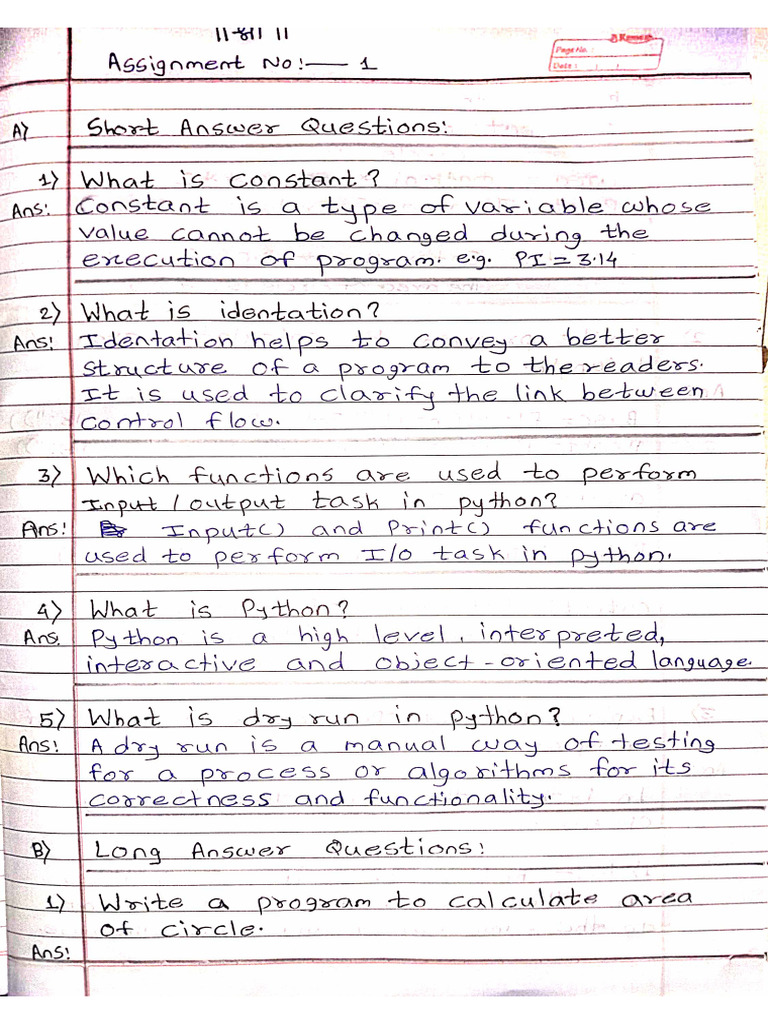 ॥ श्री ॥
Assignment No:— 1
Page No. :
Date :
A) Short Answer Questions:
1) What is constant?
Ans: Constant is a type of variable whose
value cannot be changed during the
execution of program. e.g. PI = 3.14
2) What is identation?
Ans: Identation helps to convey a better
structure of a program to the readers.
It is used to clarify the link between
control flow.
3) Which functions are used to perform
Input / output task in python?
Ans: Input() and Print() functions are
used to perform I/o task in python.
4) What is Python?
Ans. Python is a high level, interpreted,
interactive and object-oriented language.
5) What is dry run in python?
Ans: A dry run is a manual way of testing
for a process or algorithms for its
correctness and functionality.
B) Long Answer Questions:
1) Write a program to calculate area
of circle.
Ans: